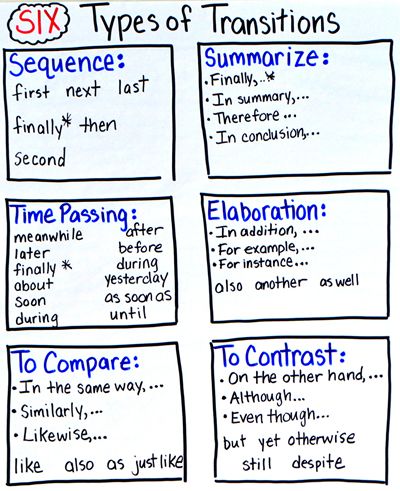 SIX Types of Transitions
Sequence:
first next last
finally* then
second
Summarize:
• Finally,...*
• In summary,...
• Therefore...
• In conclusion,...
Time Passing:
meanwhile after
later before
finally * during
about yesterday
soon as soon as
during until
Elaboration:
• In addition, ...
• For example, ...
• For instance...
also another as well
To Compare:
• In the same way, ...
• Similarly,...
• Likewise,...
like also as just like
To Contrast:
• On the other hand, ...
• Although...
• Even though...
but yet otherwise
still despite